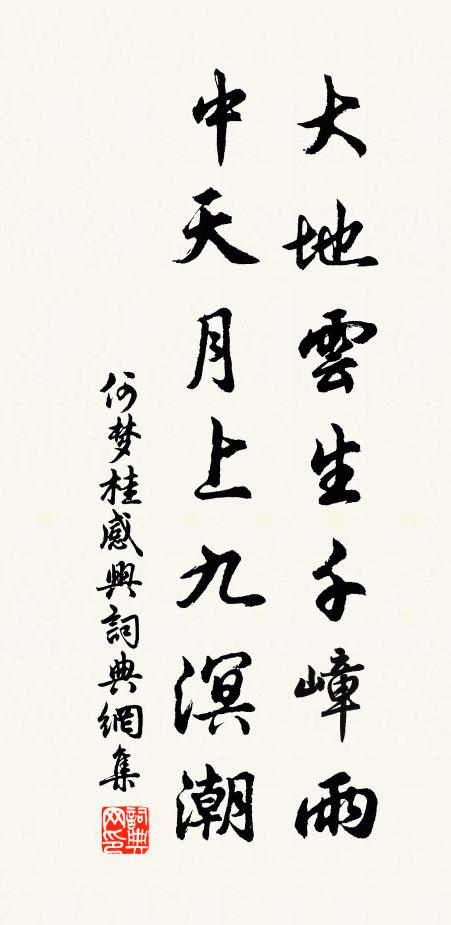 大地雲生千嶂雨
中天月上九溟潮
何梦桂感興詞典網集
詞典网印